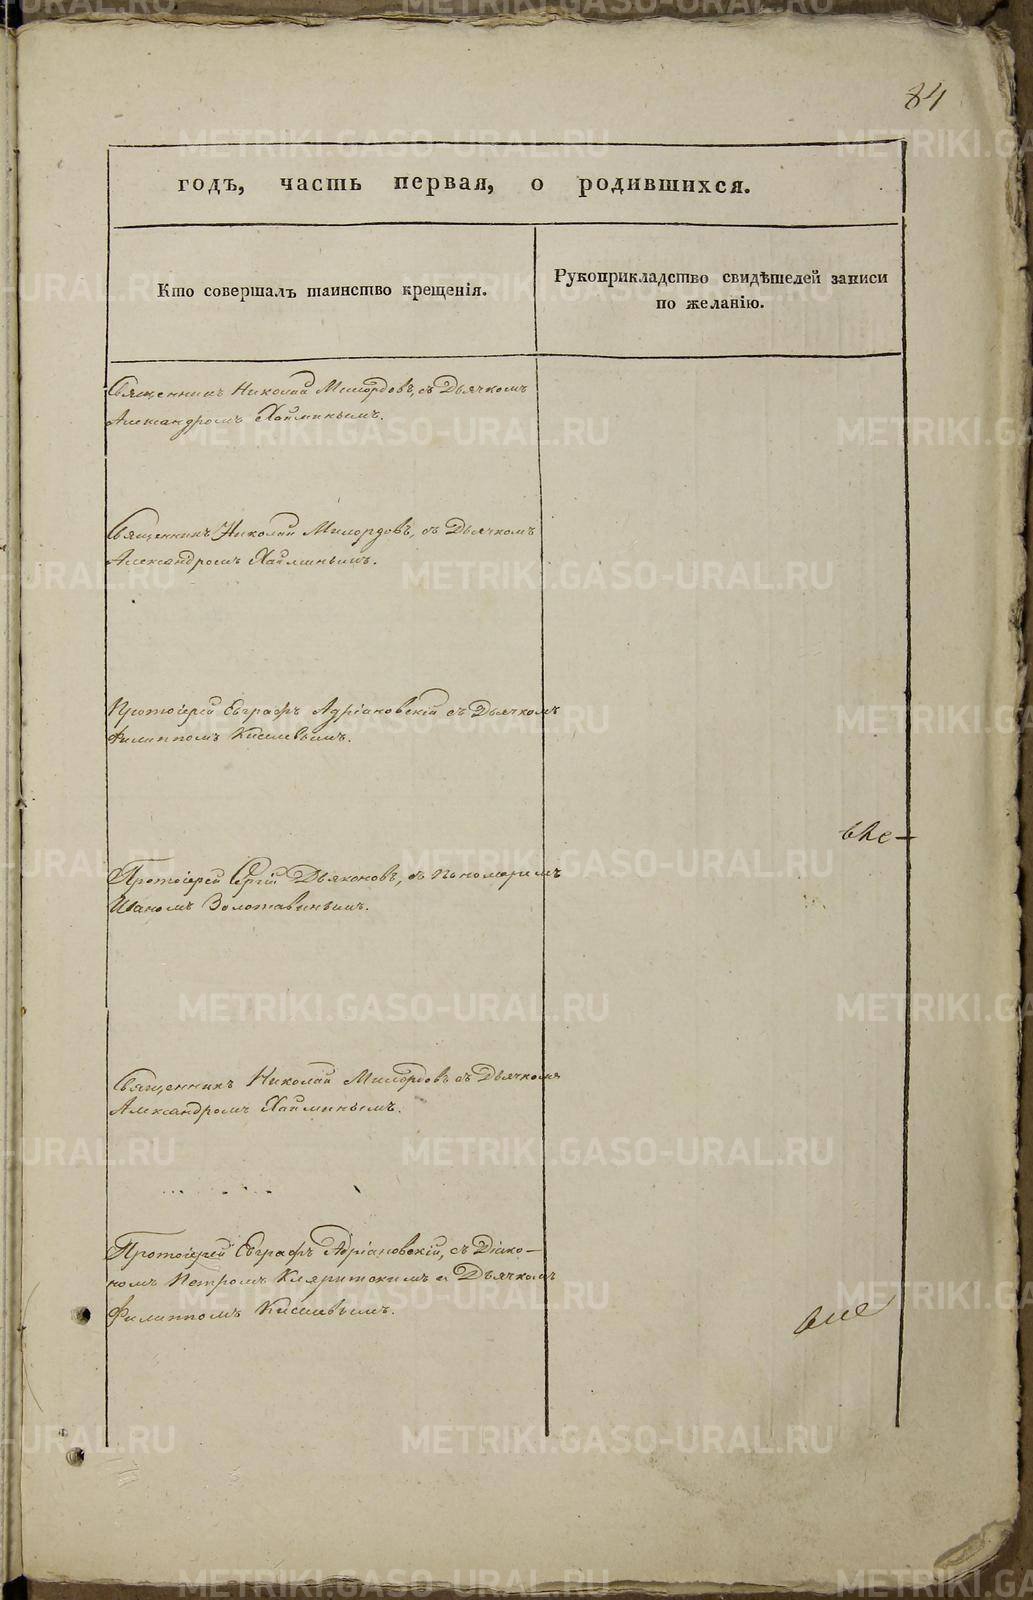 84
годъ, часть первая, о родившихся.
Кто совершалъ таинство крещенія.
Рукоприкладство свидѣтелей записи
по желанію.
Священникъ Николай Милордовъ, съ Дьячкомъ
Александромъ Хайминымъ.
Священникъ Николай Милордовъ, съ Дьячкомъ
Александромъ Хайминымъ.
Протоіерей Евграфъ Адріановскій съ Дьячкомъ
Филиппомъ Киселевымъ.
Протоіерей Сергій Дьяконовъ, съ Пономаремъ
Иваномъ Золотавинымъ.
Священникъ Николай Милордовъ съ Дьячкомъ
Александромъ Хайминымъ.
Протоіерей Евграфъ Адріановскій, съ Діако-
номъ Петромъ и Дьячкомъ
Филиппомъ Киселевымъ.
METRIKI.GASO-URAL.RU